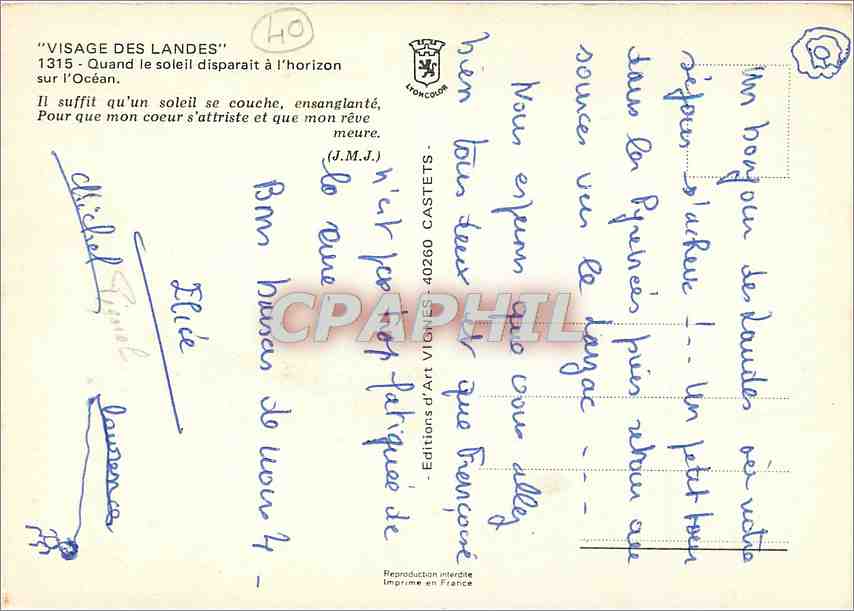 40
"VISAGE DES LANDES"
1315 - Quand le soleil disparait à l'horizon
sur l'Océan.
Il suffit qu'un soleil se couche, ensanglanté,
Pour que mon coeur s'attriste et que mon rêve
meure.
(J.M.J.)
LYONCOLOR
- Editions d'Art VIGNES - 40260 CASTETS -
Un bonjour des Landes où notre
séjour s'achève ! -- Un petit tour
dans les Pyrénées puis retour aux
sources vers le Larzac - - -
Nous espérons que vous allez
bien tous deux et que Françoise
n'est pas trop fatiguée de
la
Bons baisers de nous 4 -
Michel
laurence
CPAPHIL
Reproduction interdite
Imprimé en France